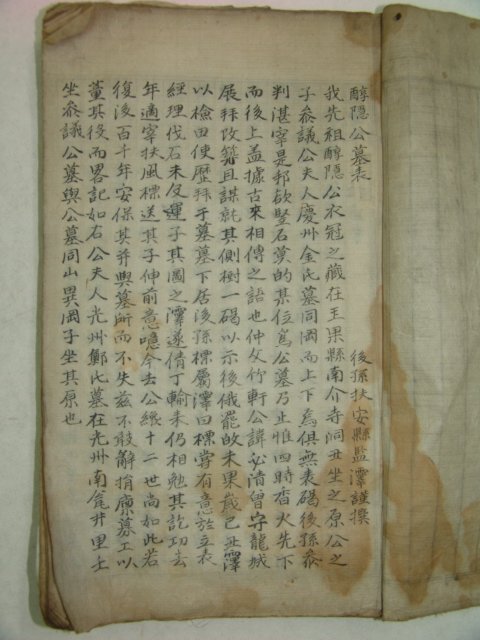 醇隱公墓表
後孫扶安縣監澤謹撰
我先祖醇隱公衣冠之藏在玉果縣南介寺洞丑坐之原公之
子參議公夫人慶州金氏墓同岡而上下焉俱無表碣後孫參
判湛宰是邦欲竪石奠的某位爲公墓乃止惟四時香火先下
而後上盖據古來相傳之語也仲父竹軒公諱必清曾守龍城
展拜改莎且謀託其側樹一碣以示後俄罷故未果歲己丑澤
以檢田使歷拜于墓墓下居後孫標屬澤曰標嘗有意於立表
經理伐石未及運子其圖之澤遂倩丁輸來仍相勉其訖功去
年適宰扶風標送其子伸前意噫今去公纔十二世尚如此若
復後百千年安保其井與墓所而不失玆不敢解捐廩募工以
董其役而畧記如右公夫人光州鄭氏墓在光州南瓮井里壬
坐參議公墓與公墓同山異岡子坐其原也